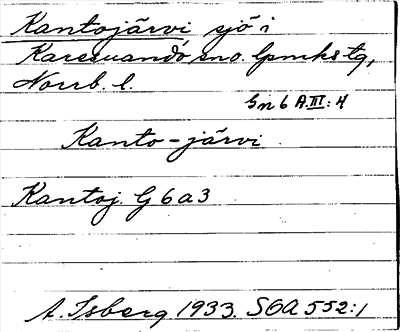 Kantojärvi sjö i
Karesuando sno. lpmkstg,
Norrb. l.
Gn 6 A.III:4
Kanto-järvi
Kantoj. G 6 a 3
A. Isberg 1933. SOA 552:1